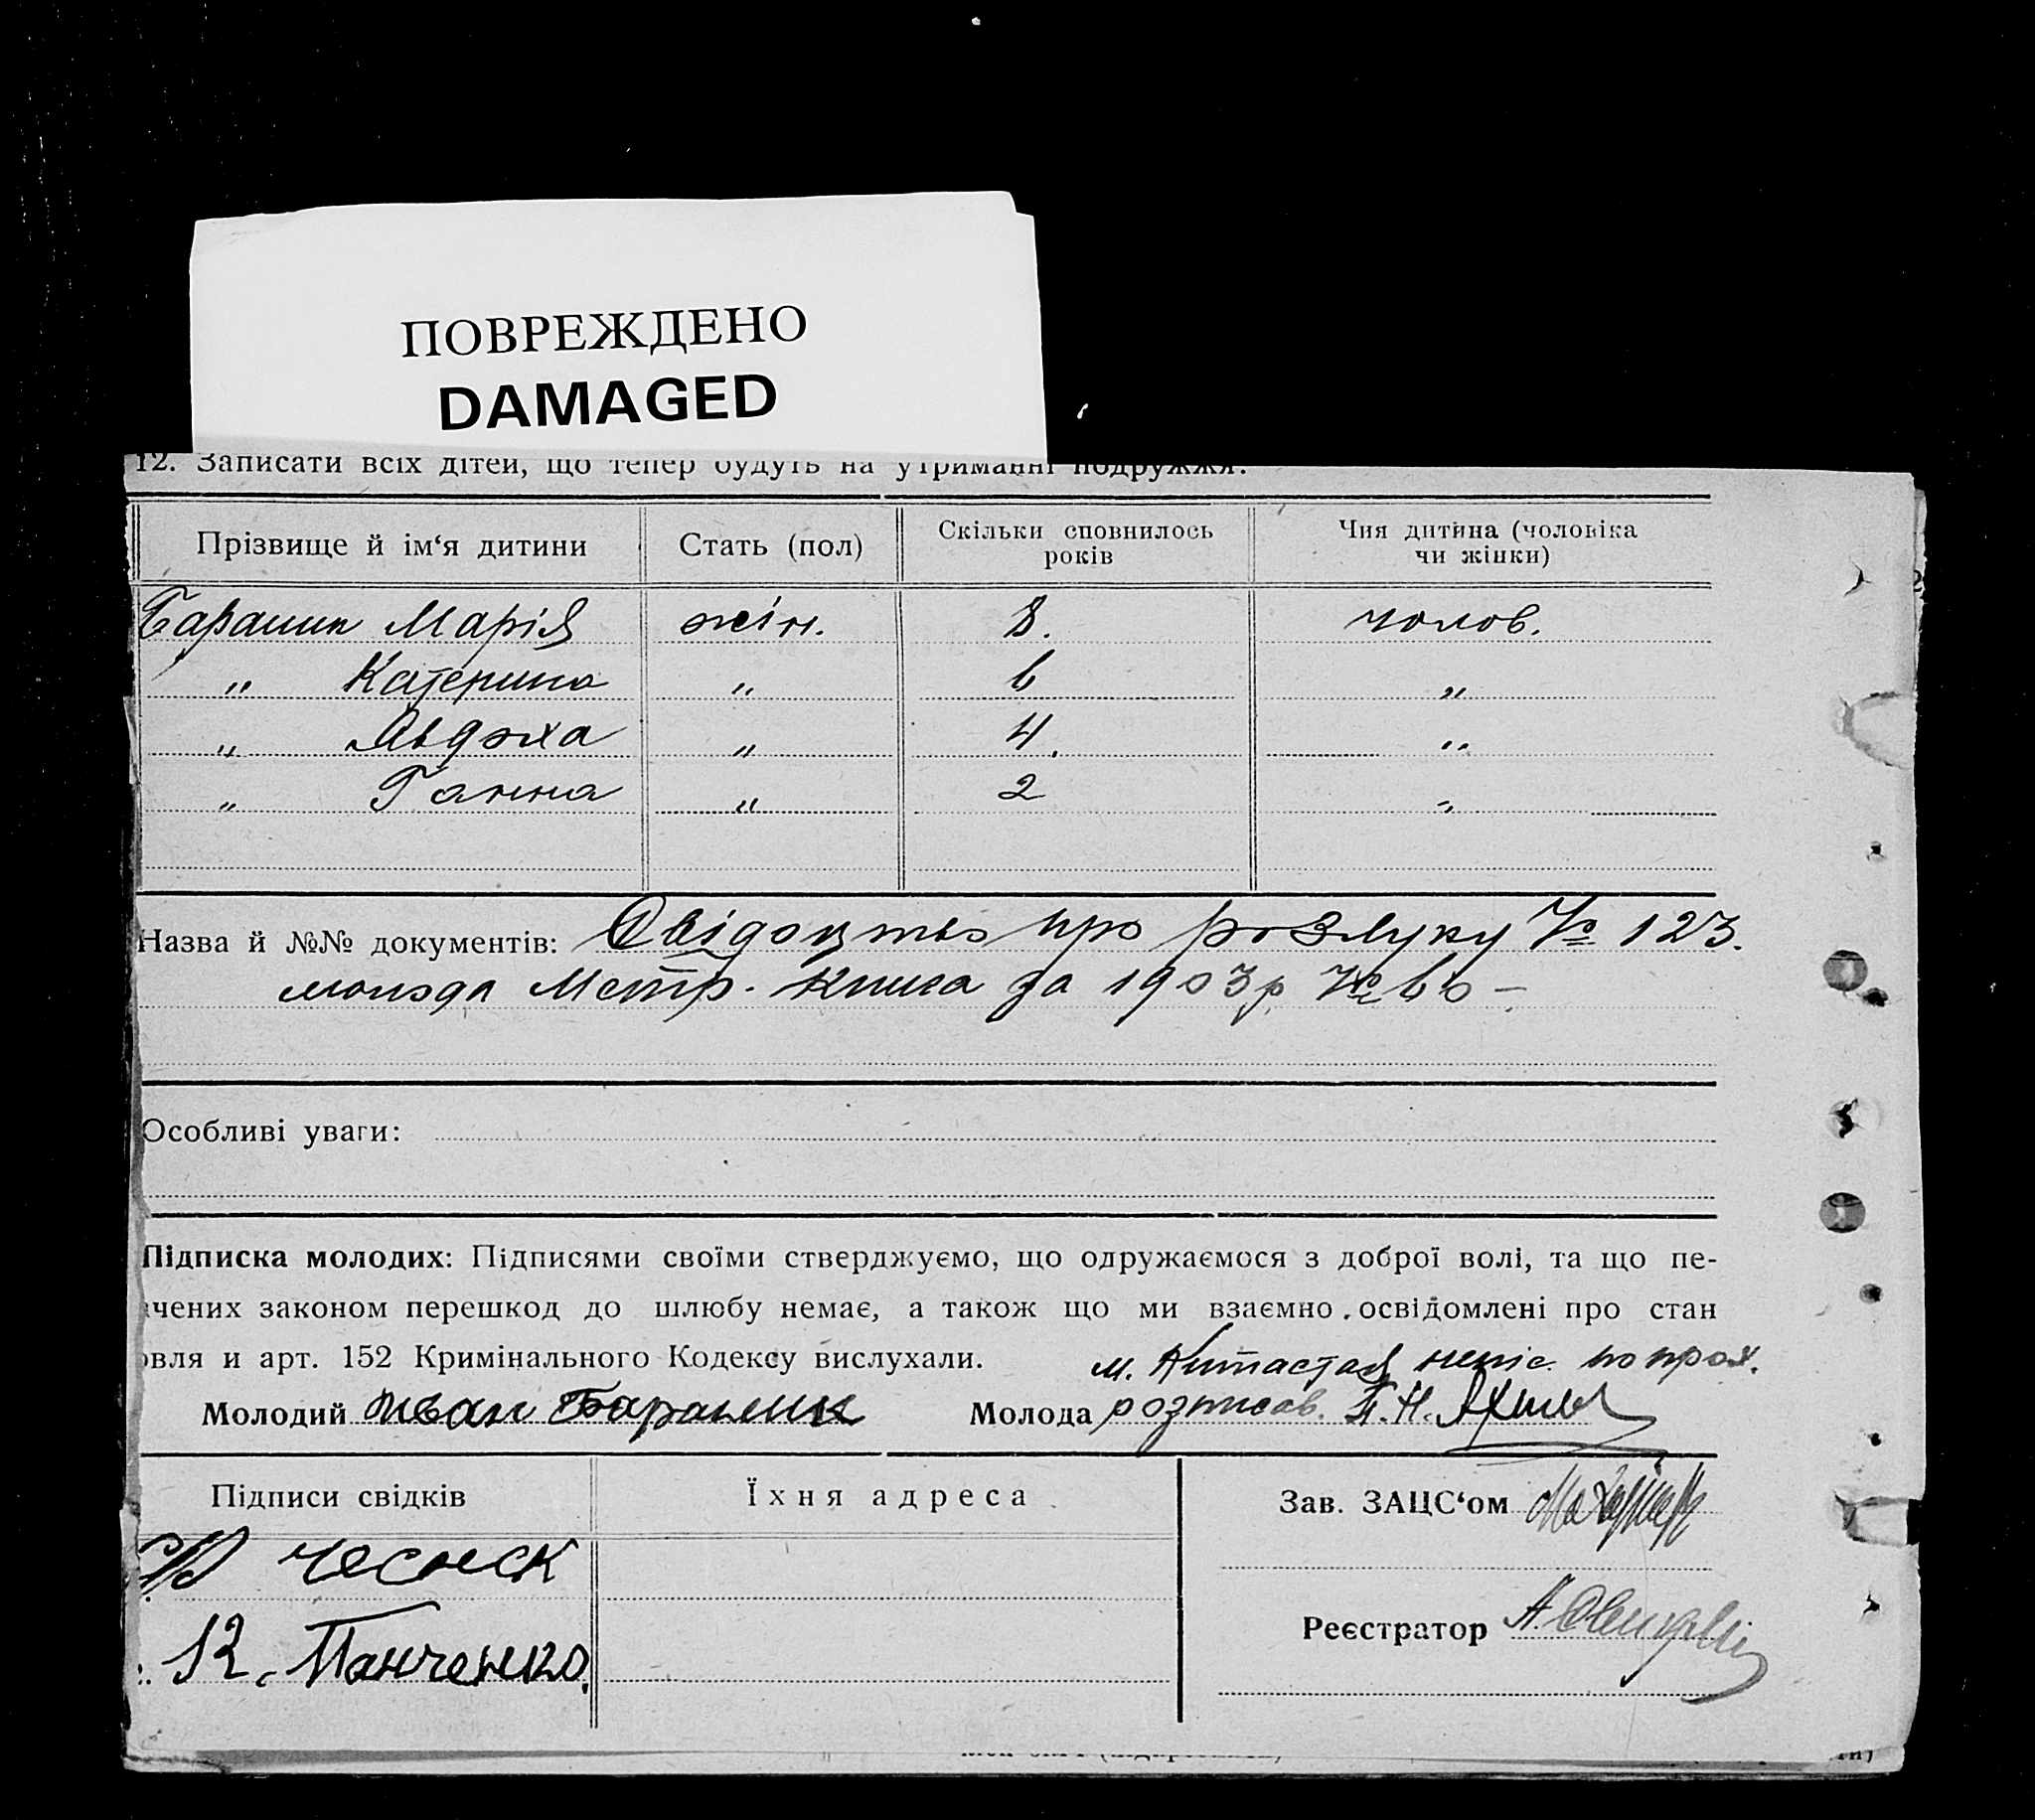 ПОВРЕЖДЕНО
DAMAGED
12. Записати всіх дітей, що тепер будуть на утриманні подружжя:
Прізвище й ім‘я дитини Стать (пол) Скільки сповнилось років Чия дитина (чоловіка чи жінки)
Бараник Марія жін. 8. чолов.
„ Катерина „ 6 „
„ Явдоха „ 4. „
„ Ганна „ 2 „
Назва й №№ документів: Свідоцтво про розлуку № 123.
молода Метр. книга за 1903 р. № 66 –
Особливі уваги:
Підписка молодих: Підписями своїми стверджуємо, що одружаємося з доброї волі, та що пе-
чених законом перешкод до шлюбу немає, а також що ми взаємно освідомлені про стан
овля и арт. 152 Кримінального Кодексу вислухали.
м. Китастая непис. по прох.
Молодий Иван Бараник Молода розписав. П. Н.
Підписи свідків Їхня адреса Зав. ЗАЦС‘ом
чеснск
К. Панченко.
Реєстратор А.